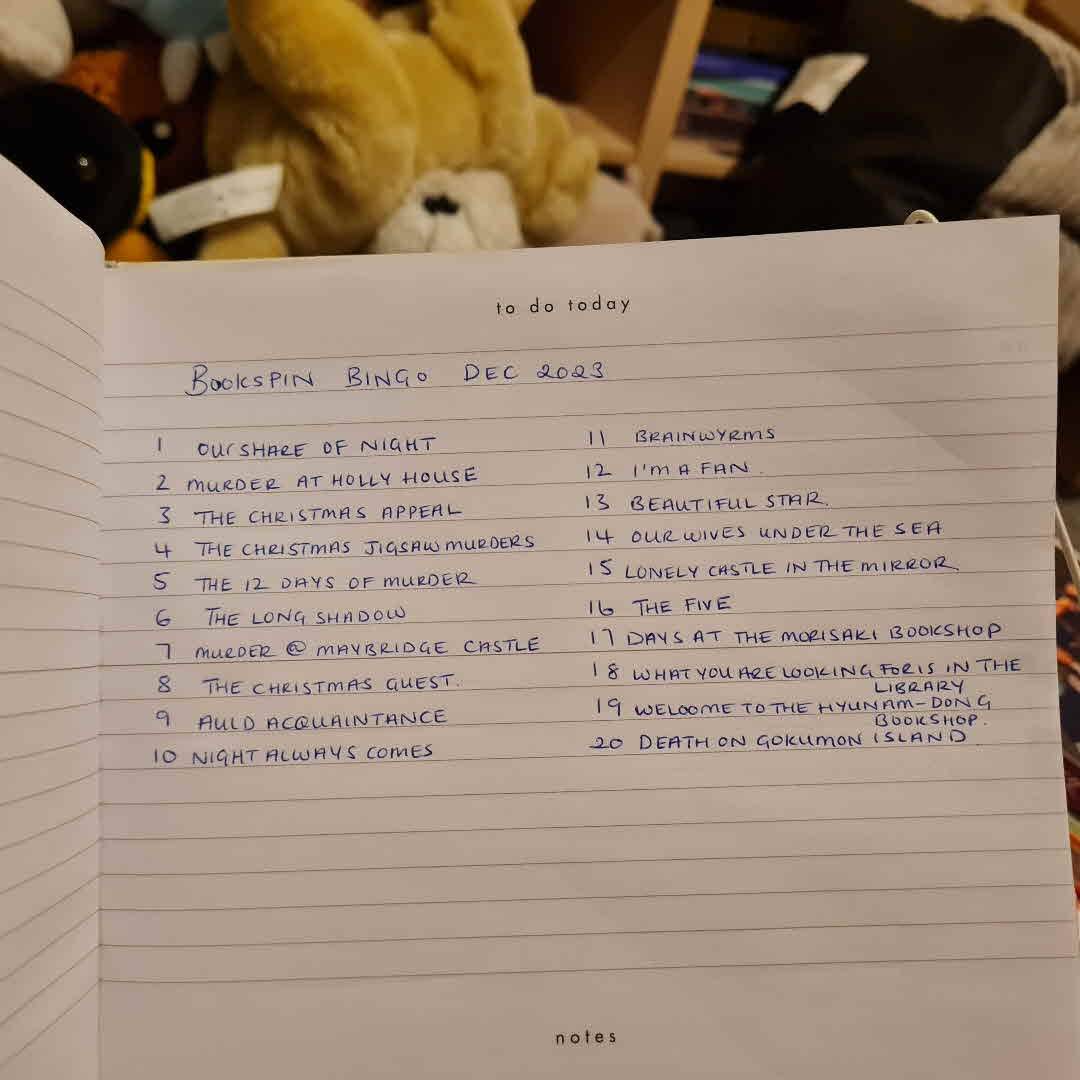 to do today
BOOKSPIN BINGO DEC 2023
1 OUR SHARE OF NIGHT
2 MURDER AT HOLLY HOUSE
3 THE CHRISTMAS APPEAL
4 THE CHRISTMAS JIGSAW MURDERS
5 THE 12 DAYS OF MURDER
6 THE LONG SHADOW
7 MURDER @ MAYBRIDGE CASTLE
8 THE CHRISTMAS GUEST.
9 AULD ACQUAINTANCE
10 NIGHT ALWAYS COMES
11 BRAINWYRMS
12 I'M A FAN.
13 BEAUTIFUL STAR.
14 OUR WIVES UNDER THE SEA
15 LONELY CASTLE IN THE MIRROR.
16 THE FIVE
17 DAYS AT THE MORISAKI BOOKSHOP
18 WHAT YOU ARE LOOKING FOR IS IN THE
LIBRARY
19 WELCOME TO THE HYUNAM-DONG
BOOKSHOP.
20 DEATH ON GOKUMON ISLAND
notes